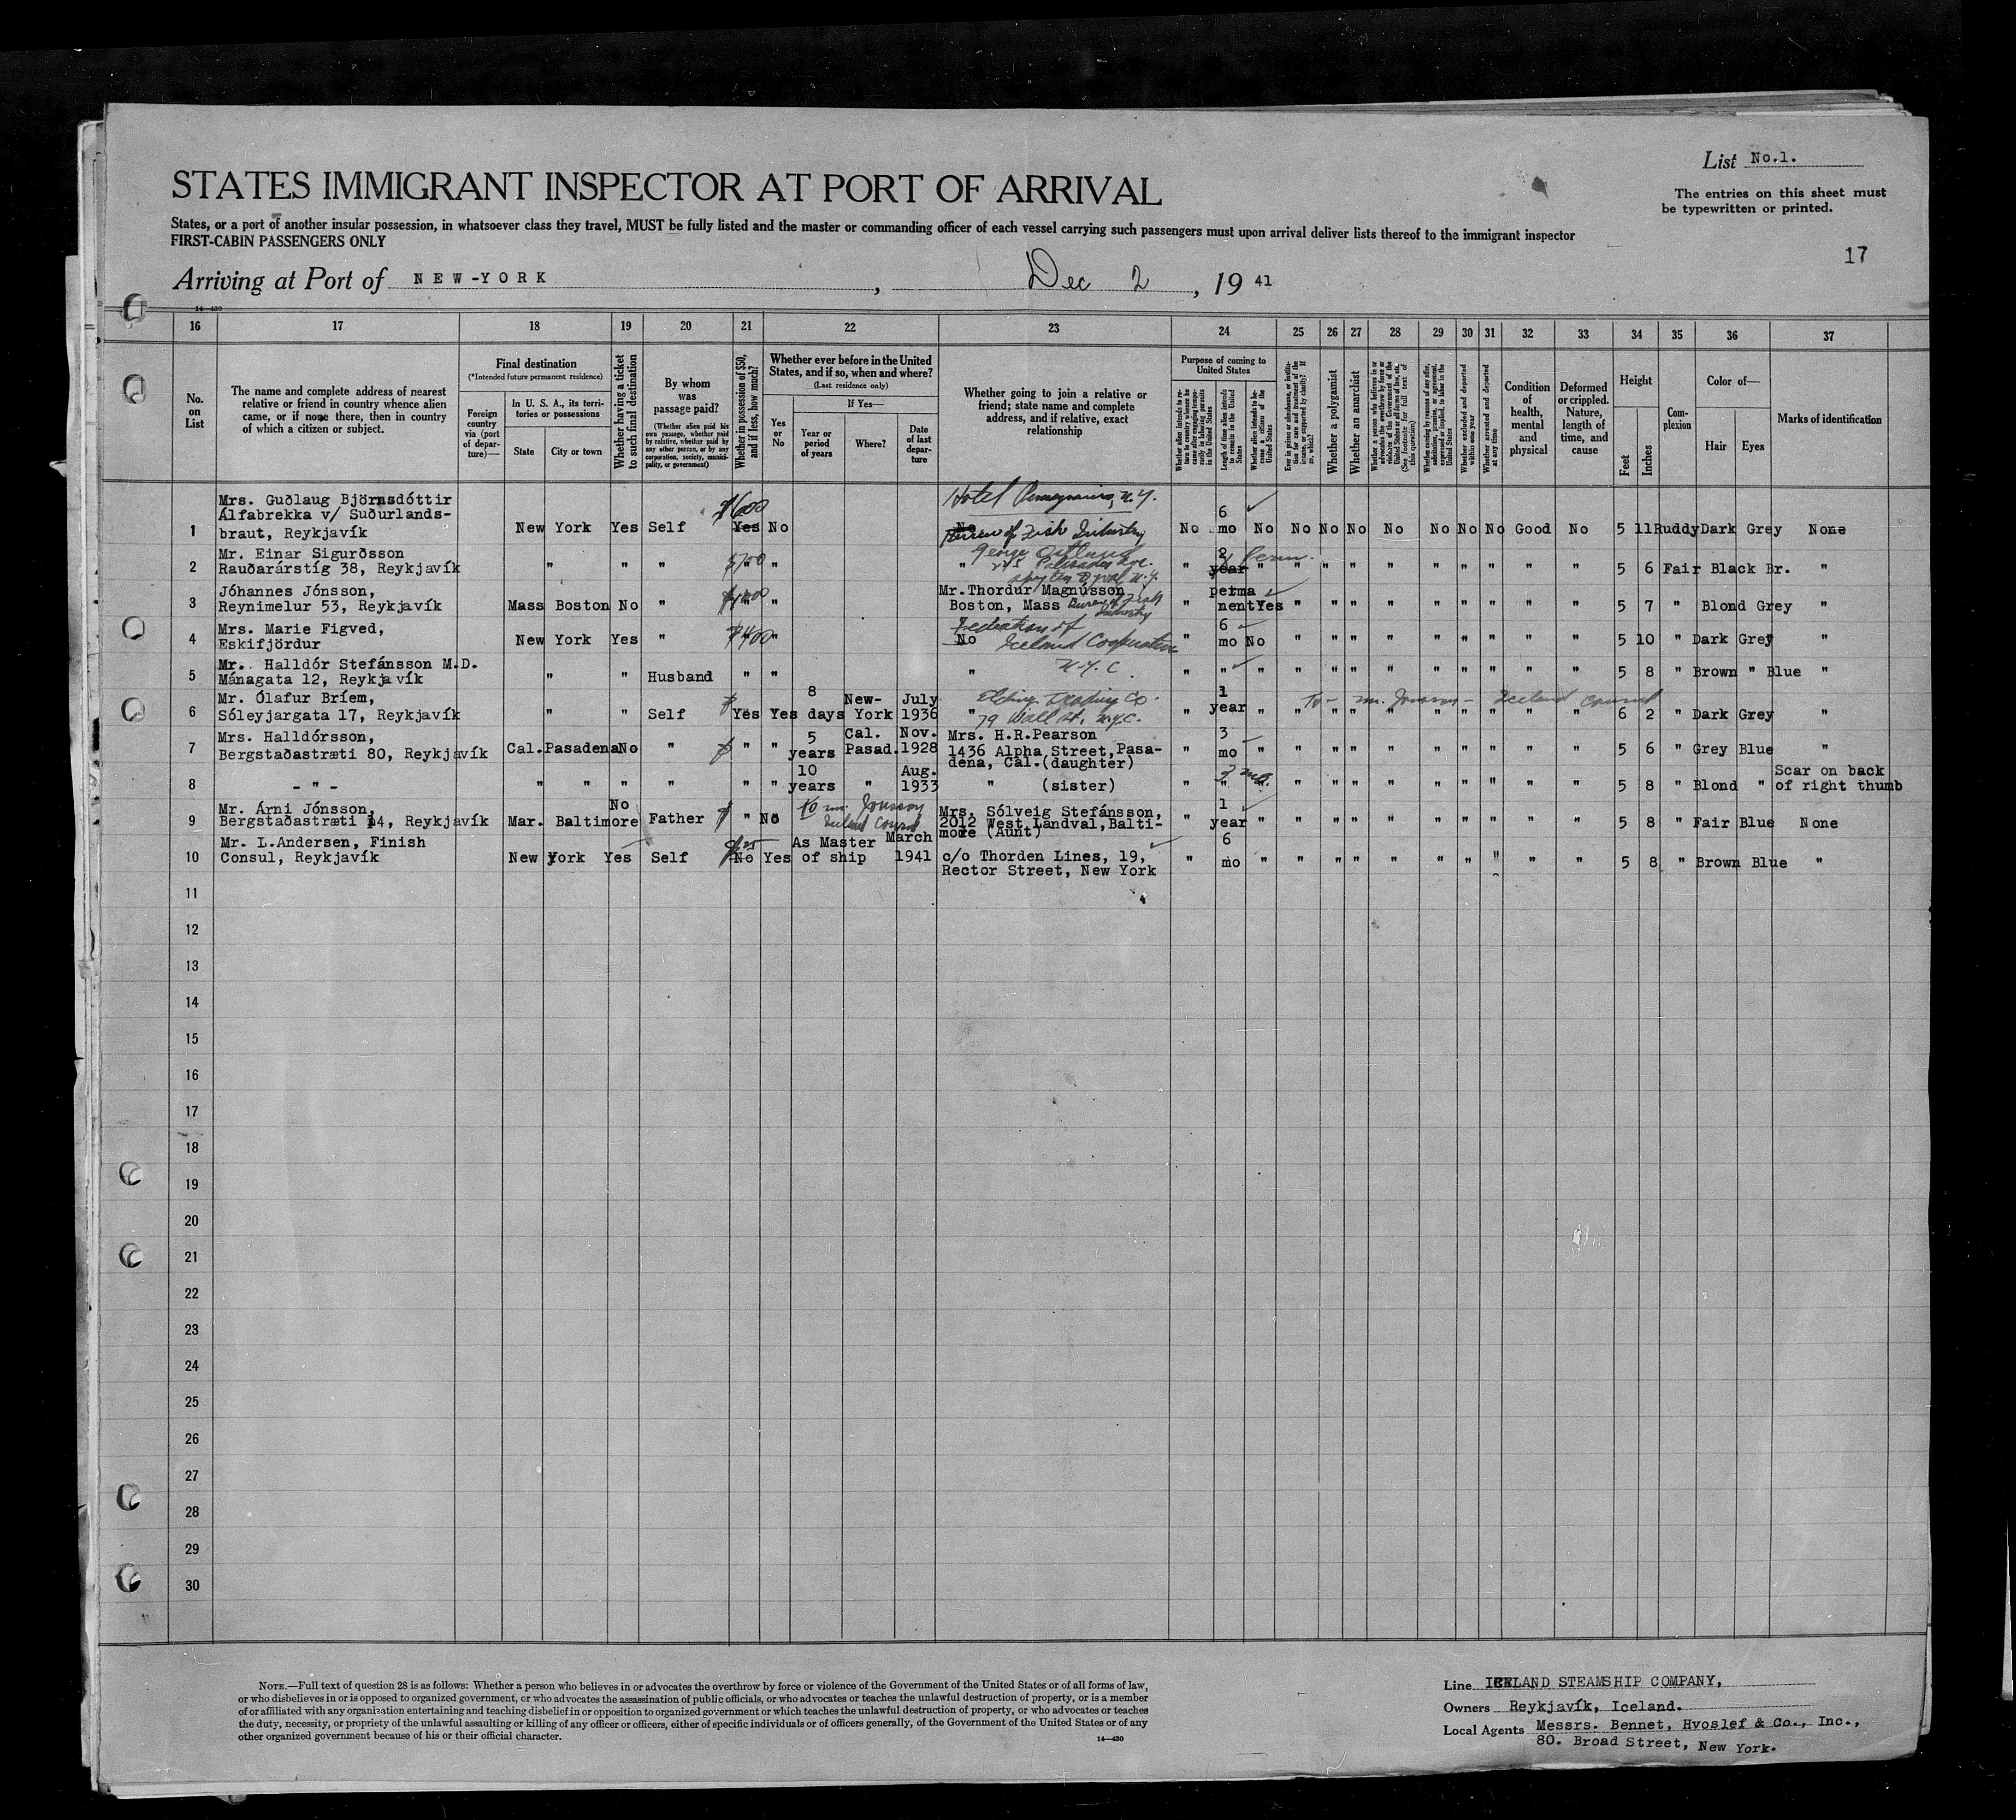 List No.1.
STATES IMMIGRANT INSPECTOR AT PORT OF ARRIVAL
The entries on this sheet must
be typewritten or printed.
States, or a port of another insular possession, in whatsoever class they travel, MUST be fully listed and the master or commanding officer of each vessel carrying such passengers must upon arrival deliver lists thereof to the immigrant inspector
FIRST-CABIN PASSENGERS ONLY
17
Arriving at Port of NEW-YORK, Dec 2, 19 41
14—430
16 17 18 19 20 21 22 23 24 25 26 27 28 29 30 31 32 33 34 35 36 37
No.
on
List
The name and complete address of nearest
relative or friend in country whence alien
came, or if none there, then in country
of which a citizen or subject.
Final destination
(*Intended future permanent residence)
Foreign
country
via (port
of depar-
ture)—
In U. S. A., its terri-
tories or possessions
State
City or town
Whether having a ticket
to such final destination
By whom
was
passage paid?
(Whether alien paid his
own passage, whether paid
by relative, whether paid by
any other person, or by any
corporation, society, munici-
pality, or government)
Whether in possession of $50,
and if less, how much?
Whether ever before in the United
States, and if so, when and where?
(Last residence only)
Yes
or
No
If Yes—
Year or
period
of years
Where?
Date
of last
depar-
ture
Whether going to join a relative or
friend; state name and complete
address, and if relative, exact
relationship
Purpose of coming to
United States
Whether alien intends to re-
turn to country whence he
came after engaging tempo-
rarily in laboring pursuits
in the United States
Length of time alien intends
to remain in the United
States
Whether alien intends to be-
come a citizen of the
United States
Ever in prison or almshouse, or institu-
tion for care and treatment of the
insane, or supported by charity? If
so, which?
Whether a polygamist
Whether an anarchist
Whether a person who believes in or
advocates the overthrow by force or
violence of the Government of the
United States or all forms of law, etc.
(See footnote for full text of
this question)
Whether coming by reason of any offer,
solicitation, promise, or agreement,
expressed or implied, to labor in the
United States
Whether excluded and deported
within one year
Whether arrested and deported
at any time
Condition
of
health,
mental
and
physical
Deformed
or crippled.
Nature,
length of
time, and
cause
Height
Feet
Inches
Com-
plexion
Color of—
Hair Eyes
Marks of identification
Mrs. Guðlaug Björnsdóttir
Álfabrekka v/ Suðurlands-
$600
Hotel Pennsylvania, N.Y.
6
1 braut, Reykjavík New York Yes Self Yes No No No mo No No No No No No No No Good No 5 11 Ruddy Dark Grey None
Bureau of Fish Industry
Mr. Einar Sigurðsson
George
2 Perm.
2 Rauðarárstíg 38, Reykjavík " " " $700 " " " Palisades Ave. " year " " " " " " " " " " 5 6 Fair Black Br. "
Jóhannes Jónsson,
Mr. Thordur Magnússon
perma
3 Reynimelur 53, Reykjavík Mass Boston No " " " Boston, Mass Bureau of Fish Industry " nent Yes " " " " " " " " " 5 7 " Blond Grey "
Mrs. Marie Figved,
Federation of
6
4 Eskifjördur New York Yes " $400 " No Iceland Cooperative " mo No " " " " " " " " " 5 10 " Dark Grey "
Mr. Halldór Stefánsson M.D.
N.Y.C
5 Mánagata 12, Reykjavík " " Husband " " " " " " " " " " " " " " " " 5 8 " Brown " Blue "
Mr. Ólafur Bríem,
8 New- July
Trading Co.
1
To - Mr. Jonsson - Iceland Consul
6 Sóleyjargata 17, Reykjavík " " Self Yes Yes days York 1936 " 79 Wall St. N.Y.C. " year " " " " " " " " " " 6 2 " Dark Grey "
Mrs. Halldórsson,
5 Cal. Nov.
Mrs. H.R.Pearson
3
7 Bergstaðastræti 80, Reykjavík Cal. Pasadena No " " " years Pasad. 1928 1436 Alpha Street, Pasa- " mo " " " " " " " " " " 5 6 " Grey Blue "
dena, Cal.(daughter)
10 Aug.
3 mo.
Scar on back
8 - " - " " " " " " years " 1933 " (sister) " " " " " " " " " " " " 5 8 " Blond " of right thumb
No
Mr. Árni Jónsson,
To Mr. Jonsson
Iceland Consul
Mrs. Sólveig Stefánsson,
1
9 Bergstaðastræti 14, Reykjavík Mar. Baltimore Father " No 2012 West Landval, Balti- " year " " " " " " " " " " 5 8 " Fair Blue None
more (Aunt)
Mr. L.Andersen, Finish
$25
As Master March
6
10 Consul, Reykjavík New York Yes Self No Yes of ship 1941 c/o Thorden Lines, 19, " mo " " " " " " " " " " 5 8 " Brown Blue "
Rector Street, New York
11
12
13
14
15
16
17
18
19
20
21
22
23
24
25
26
27
28
29
30
NOTE.—Full text of question 28 is as follows: Whether a person who believes in or advocates the overthrow by force or violence of the Government of the United States or of all forms of law,
or who disbelieves in or is opposed to organized government, or who advocates the assassination of public officials, or who advocates or teaches the unlawful destruction of property, or is a member
of or affiliated with any organization entertaining and teaching disbelief in or opposition to organized government or which teaches the unlawful destruction of property, or who advocates or teaches
the duty, necessity, or propriety of the unlawful assaulting or killing of any officer or officers, either of specific individuals or of officers generally, of the Government of the United States or of any
other organized government because of his or their official character.
14—430
Line ICELAND STEAMSHIP COMPANY,
Owners Reykjavík, Iceland.
Local Agents Messrs. Bennet, Hvoslef & Co., Inc.,
80. Broad Street, New York.